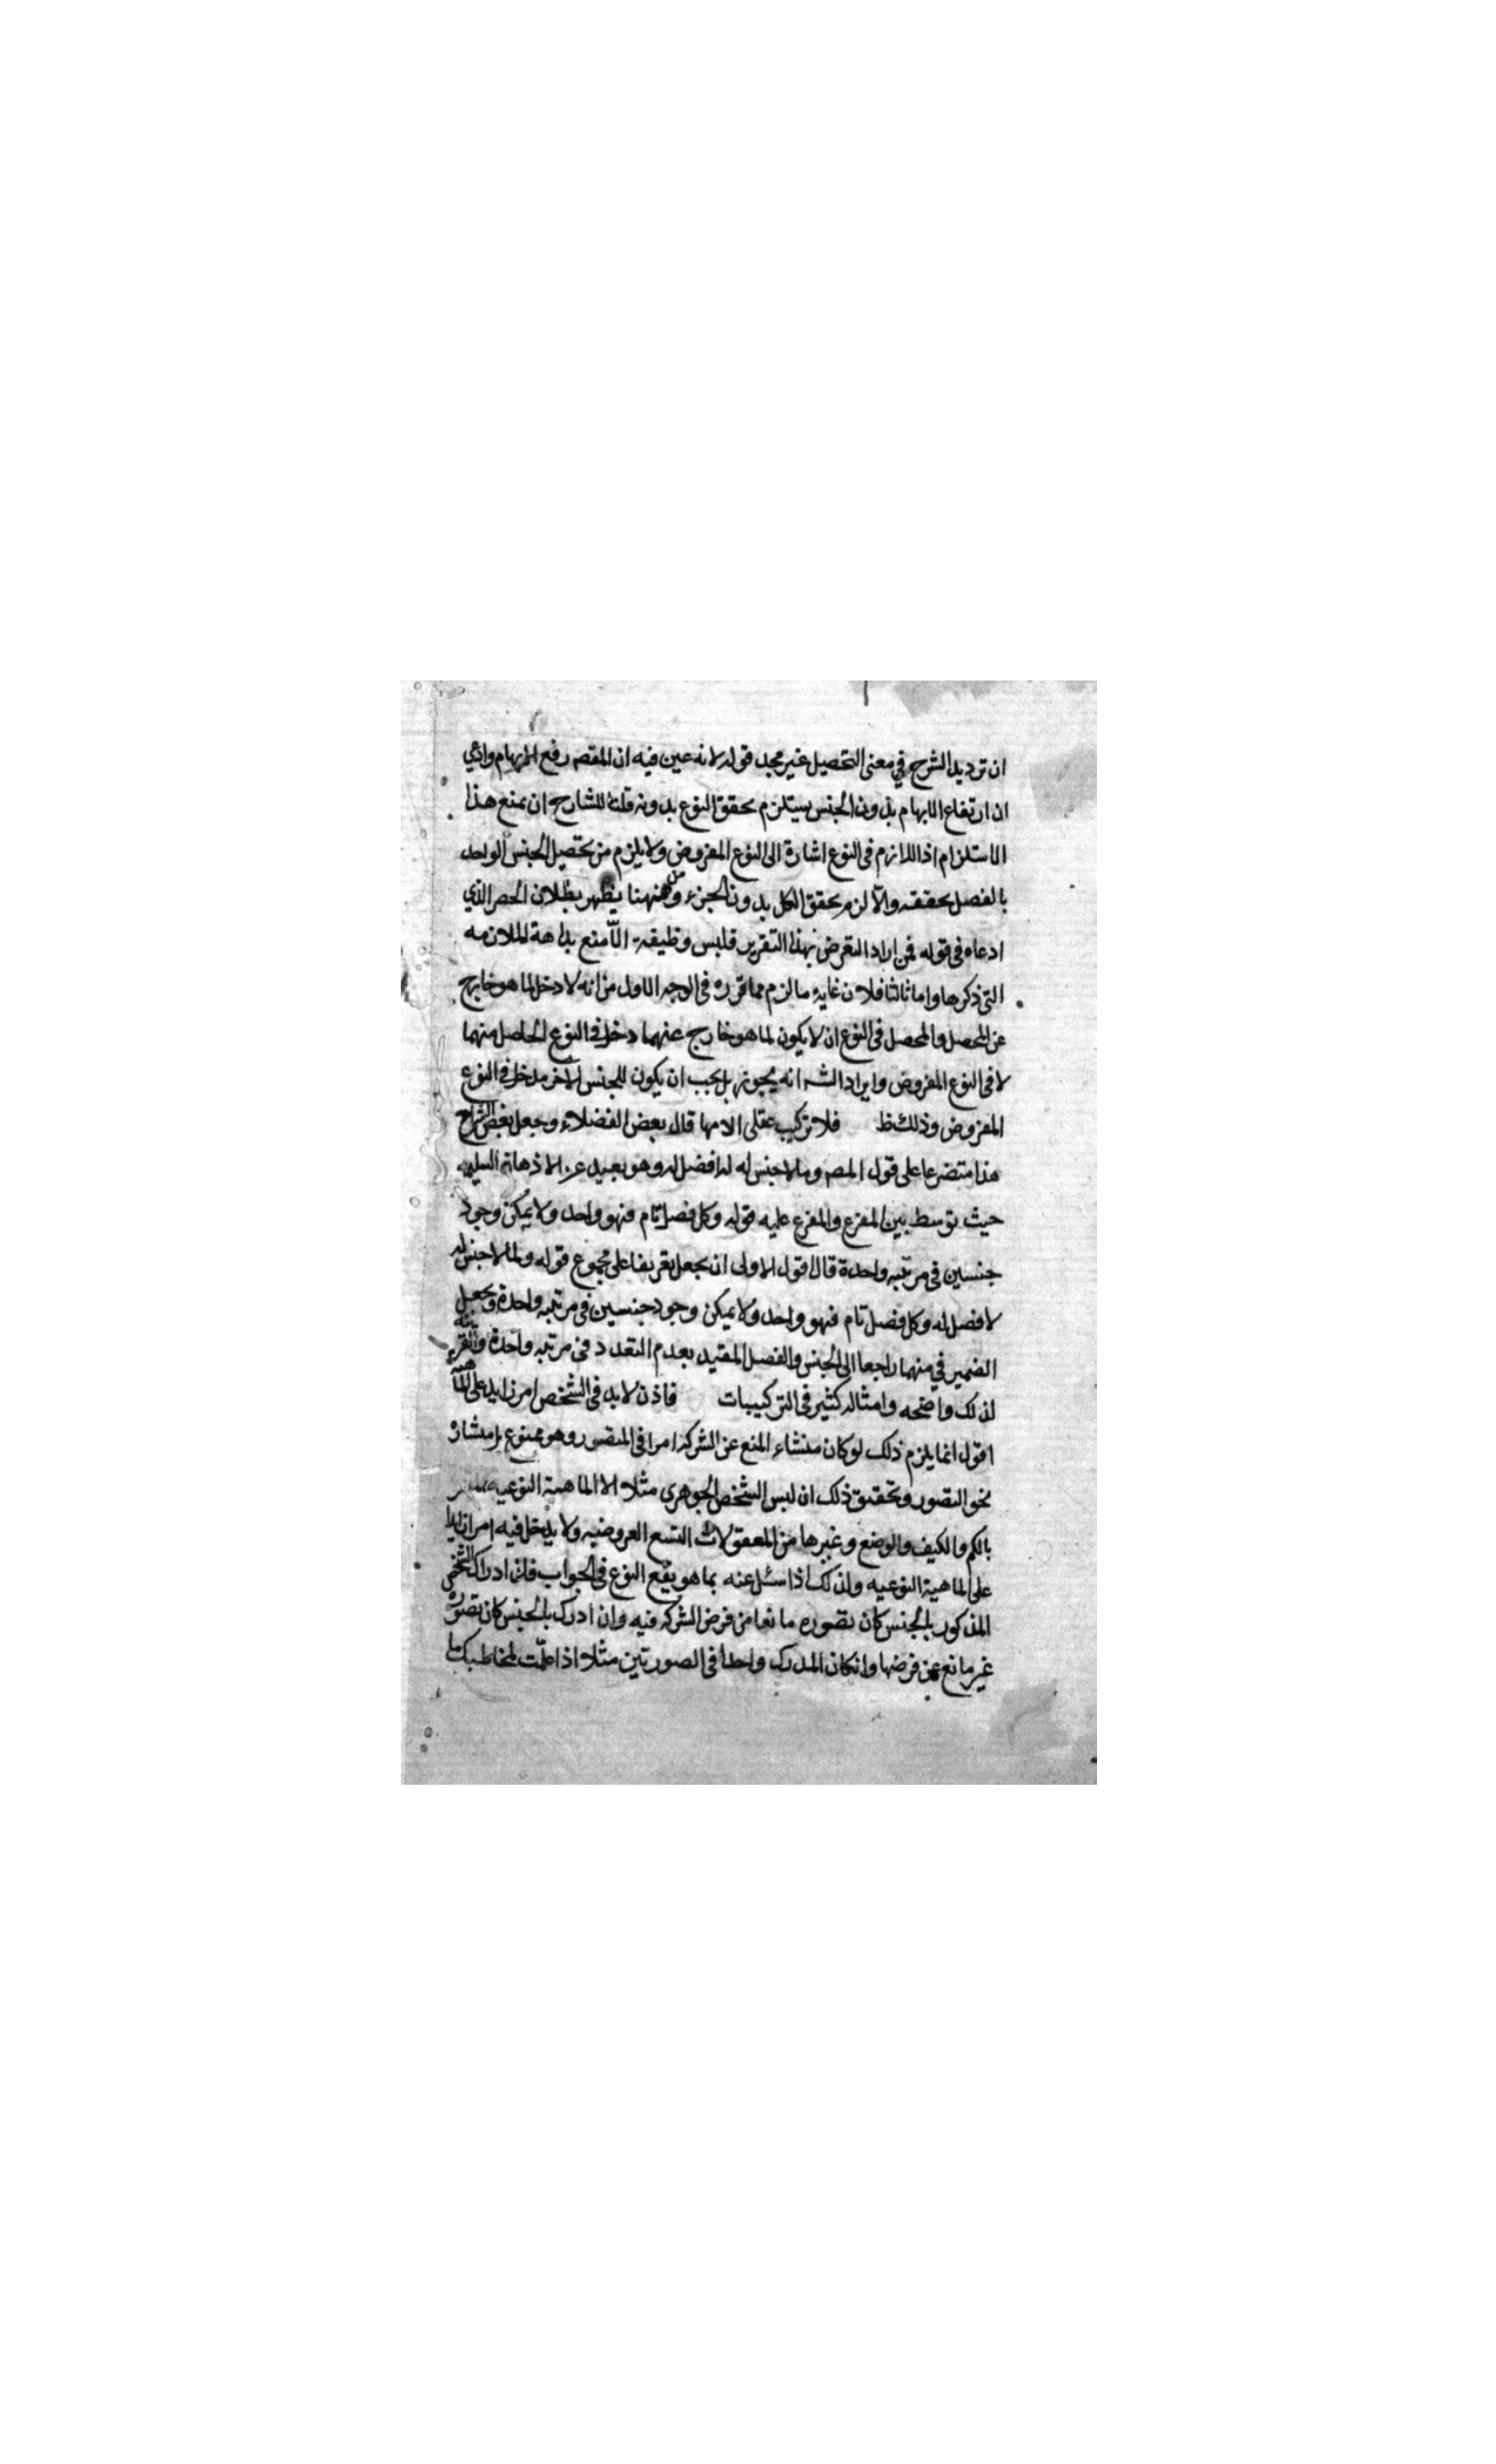 ان ترديد الشرح في معنى التحصيل غير مجد قوله لانه عين فيه ان المقصـ رفع الابهام وادعى
ان ارتفاع الابهام بدون الجنس يستلزم تحقق النوع بدونه قلنا للشارح ان يمنع هذا
الاستلزام اذ اللازم فى النوع اشارة الى النوع المفروض ولا يلزم من تحصيل الجنس الواحد
بالفصل تحققه والّا لزم تحقق الكل بدون الجزء ومن ههنا يظهر بطلان الحصر الذي
ادعاه فى قوله فمن اراد التعرض بهذا التقرير فليس وظيفته الّا منع بداهة الملازمه
التى ذكرها واما ثالثا فلان غاية ما لزم مما قرره فى الوجه الاول من انه لا دخل لما هو خارج
عن المحصل والمحصل فى النوع ان لا يكون لما هو خارج عنهما دخل فى النوع الحاصل منهما
لا فى النوع المفروض وايراد الشـ انه يجوز بل يجب ان يكون للجنس الاخر مدخل فى النوع
المفروض وذلك ظ فلا تركيب عقلى الا منها قال بعض الفضلاء وجعل بعض الشراح
هذا متفرعا على قول المصـ وما لا جنس له لا فصل له وهو بعيد عن الاذهان السليمه
حيث توسط بين المفرع والمفرع عليه قوله وكل فصل تام فهو واحد ولا يمكن وجود
جنسين فى مرتبه واحدة قال اقول الاولى ان يجعل تفريعا على مجموع قوله وما لا جنس له
لا فصل له وكل فصل تام فهو واحد ولا يمكن وجود جنسين فى مرتبه واحدة ويجعل
الضمير في منهما راجعا الى الجنس والفصل المقيد بعدم التعدد فى مرتبه واحدة والقرينه
لذلك واضحه وامثاله كثير فى التركيبات فاذن لا بد فى الشخص امر زايد على الماهيه
اقول انما يلزم ذلك لو كان منشاء المنع عن الشركه امرا فى المتصور وهو ممنوع بل منشاؤه
نحو التصور وتحقيق ذلك ان ليس الشخص الجوهرى مثلا الا الماهية النوعيه
بالكم والكيف والوضع وغيرها من المعقولات التسع العرضيه ولا يدخل فيه امر زايدا
على الماهية النوعيه ولذلك اذا سئل عنه بما هو يقع النوع فى الجواب فان ادراك الشخص
المذكور بالجنس كان تصوره مانعا من فرض الشركه فيه وان ادرك بالجنس كان تصوره
غير مانع عن فرضها وان كان المدرك واحدا فى الصورتين مثلا اذا علّمت لمخاطبك ما